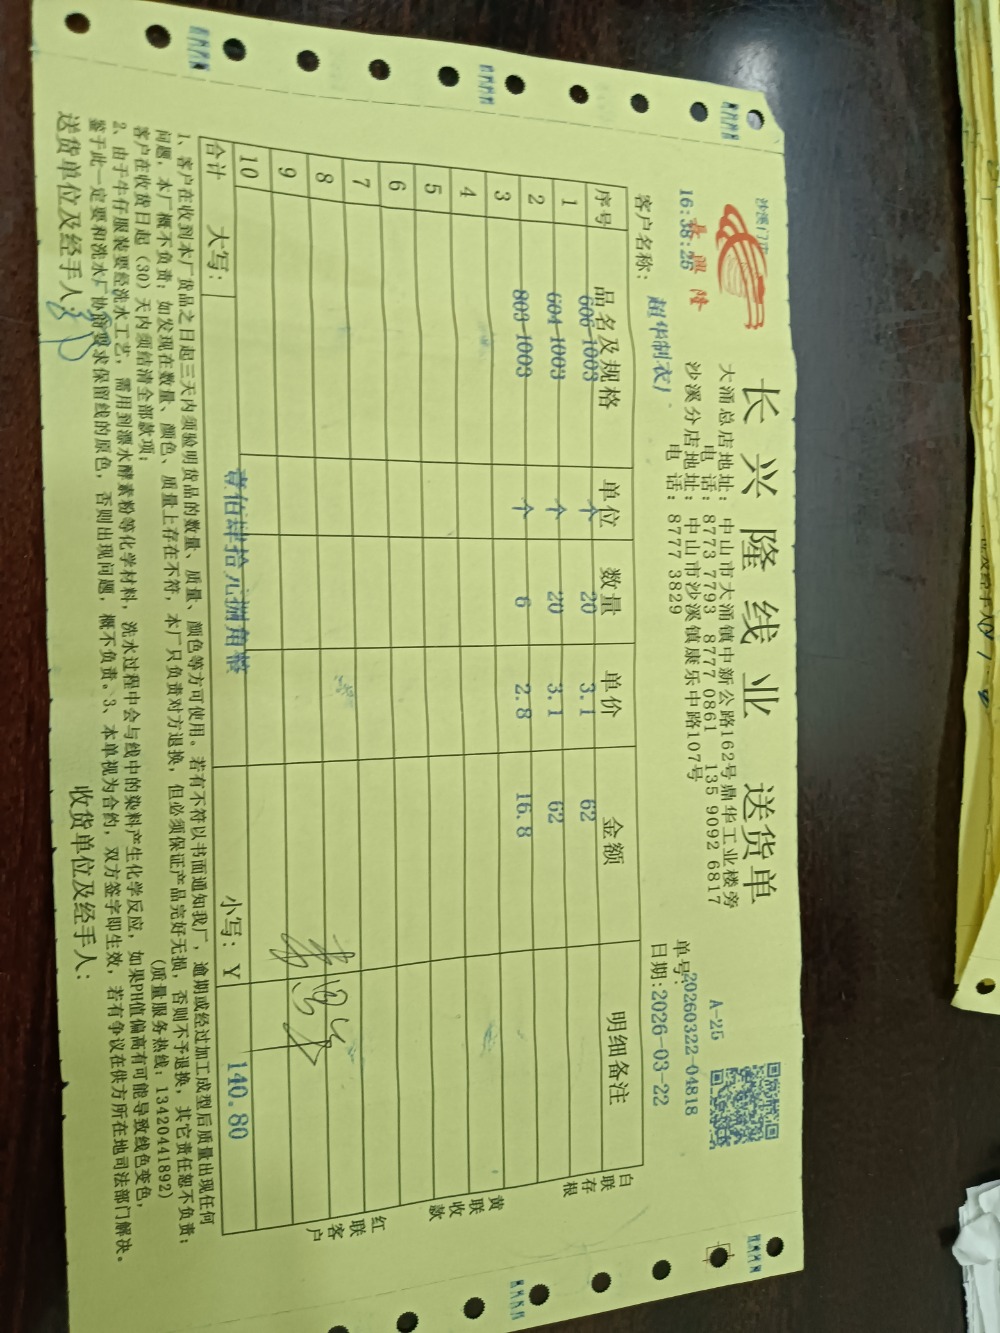 沙溪门市
嘉興隆
16:38:25
长兴隆线业 送货单
大涌总店地址：中山市大涌镇中新公路162号鼎华工业楼旁
电 话：8773 7793 8777 0861 135 9092 6817
沙溪分店地址：中山市沙溪镇康乐中路107号
电 话：8777 3829
A-25
单号:20260322-04818
日期:2026-03-22
客户名称：超华制衣厂
序号 品名及规格 单位 数量 单价 金额 明细备注
1 606-1003 个 20 3.1 62
2 604-1003 个 20 3.1 62
3 803-1003 个 6 2.8 16.8
4
5
6
7
8
9
10
合计 大写：壹佰肆拾元捌角整 小写：Y 140.80
白联存根
黄联收款
红联客户
1、客户在收到本厂货品之日起三天内须验明货品的数量、质量、颜色等方可使用。若有不符以书面通知我厂，逾期或经过加工成型后质量出现任何
问题，本厂概不负责；如发现在数量、颜色、质量上存在不符，本厂只负责对方退换，但必须保证产品完好无损，否则不予退换，其它责任恕不负责；
客户在收货日起（30）天内须结清全部款项； （质量服务热线：13420441892）
2、由于牛仔服装要经洗水工艺，需用到漂水酵素粉等化学材料，洗水过程中会与线中的染料产生化学反应，如果PH值偏高有可能导致线色变色，
鉴于此一定要和洗水厂协商要求保留线的原色，否则出现问题，概不负责。3、本单视为合约，双方签字即生效，若有争议在供方所在地司法部门解决。
送货单位及经手人： 收货单位及经手人：